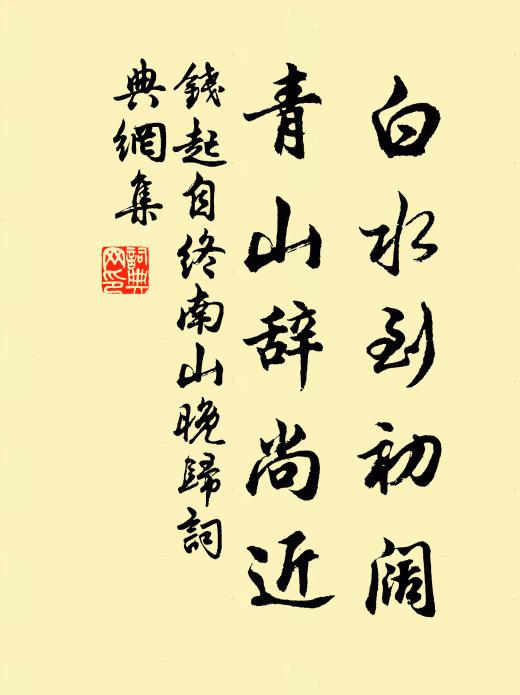 白水到初阔
青山辞尚近
錢起自终南山晚歸詞
典網集
詞典网印